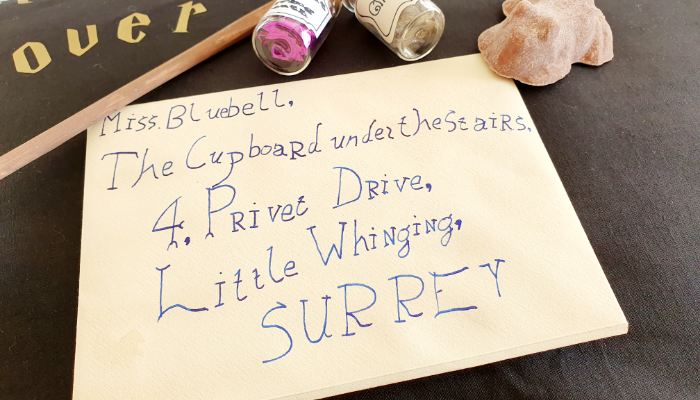 over
Miss. Bluebell,
The Cupboard under the Stairs,
4. Privet Drive,
Little Whinging,
SURREY